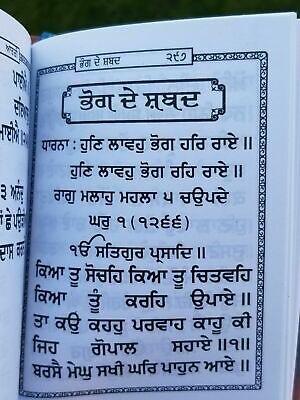 ਭੋਗ ਦੇ ਸ਼ਬਦ
੨੯੭
ਭੋਗ ਦੇ ਸ਼ਬਦ
ਧਾਰਨਾ : ਹੁਣਿ ਲਾਵਹੁ ਭੋਗ ਹਰਿ ਰਾਏ ॥
ਹੁਣਿ ਲਾਵਹੁ ਭੋਗ ਰਹਿ ਰਾਏ ॥
ਰਾਗੁ ਮਲਾਹੁ ਮਹਲਾ ੫ ਚਉਪਦੇ
ਘਰੁ ੧ (੧੨੬੬)
ੴ ਸਤਿਗੁਰ ਪ੍ਰਸਾਦਿ ॥
ਕਿਆ ਤੂ ਸੋਚਹਿ ਕਿਆ ਤੂ ਚਿਤਵਹਿ
ਕਿਆ ਤੂੰ ਕਰਹਿ ਉਪਾਏ ॥
ਤਾ ਕਉ ਕਹਹੁ ਪਰਵਾਹ ਕਾਹੂ ਕੀ
ਜਿਹ ਗੋਪਾਲ ਸਹਾਏ ॥੧॥
ਬਰਸੈ ਮੇਘੁ ਸਖੀ ਘਰਿ ਪਾਹੁਨ ਆਏ ॥